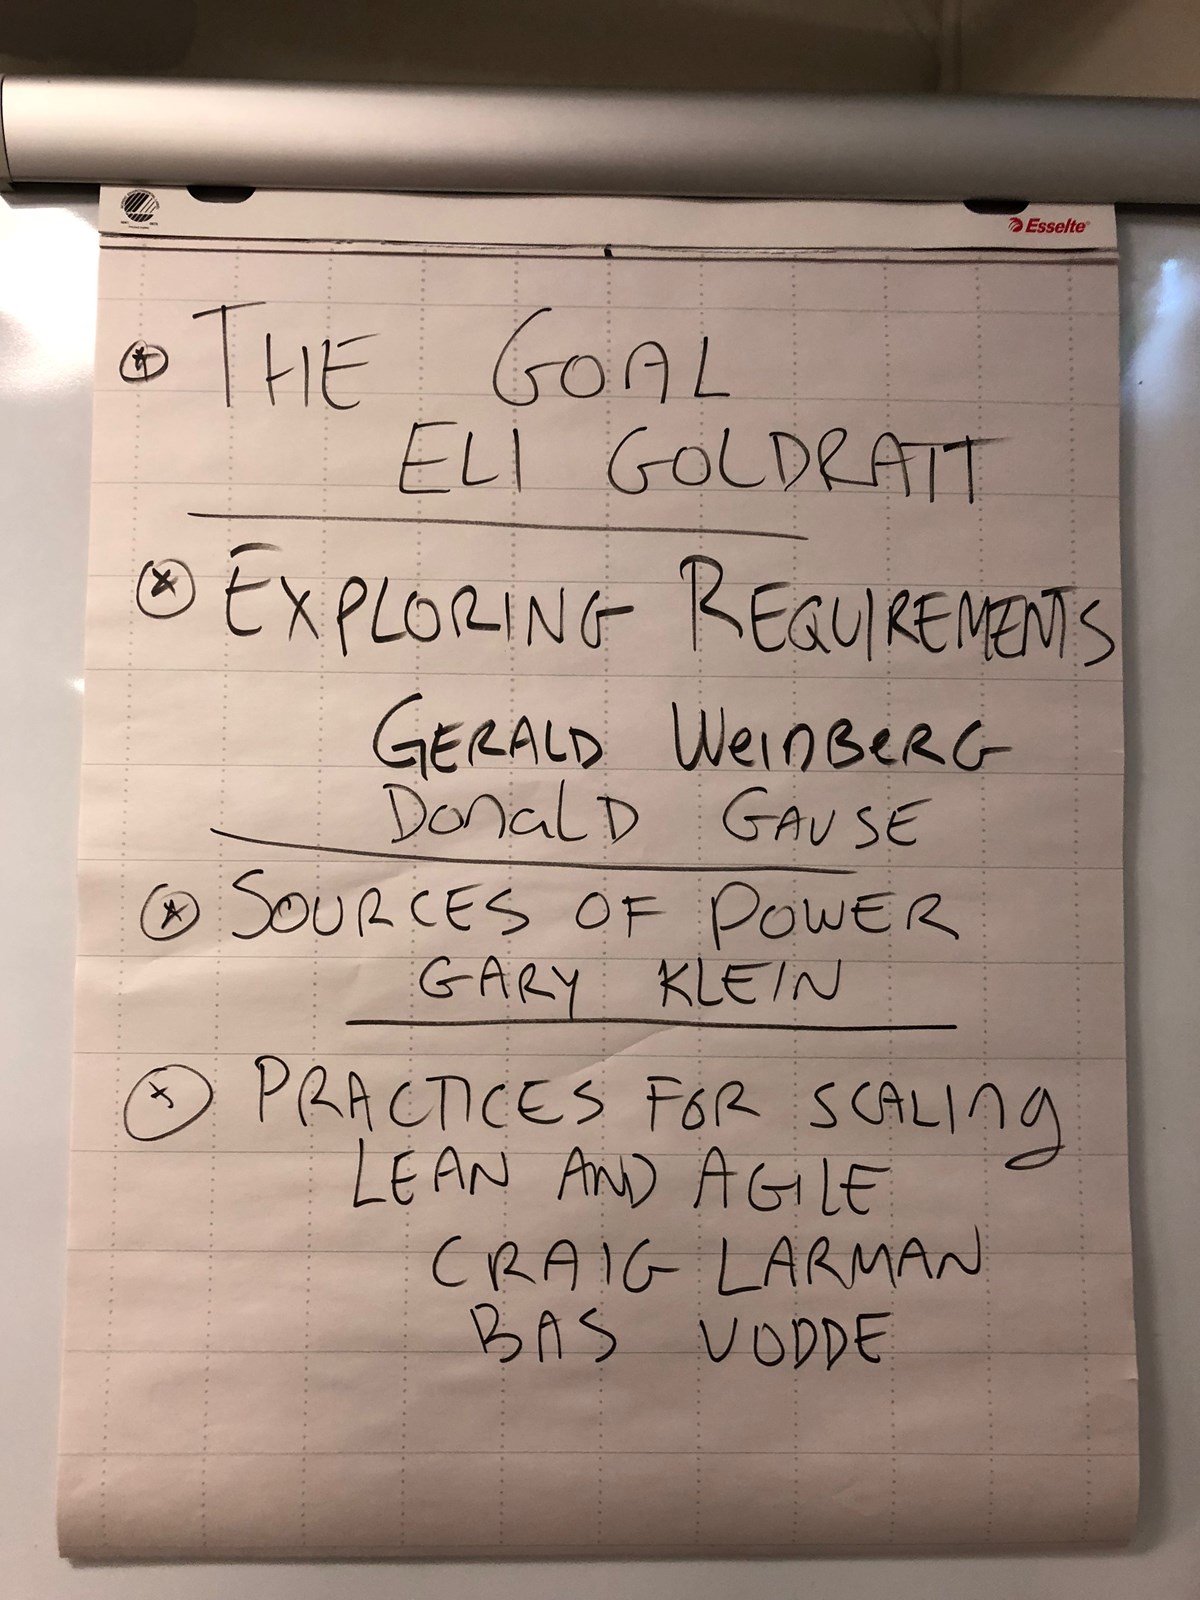 Esselte
THE GOAL
ELI GOLDRATT
EXPLORING REQUIREMENTS
GERALD WeinBeRG
DonalD GAUSE
SOURCES OF POWER
GARY KLEIN
PRACTICES FOR SCALing
LEAN AND AGILE
CRAIG LARMAN
BAS VODDE